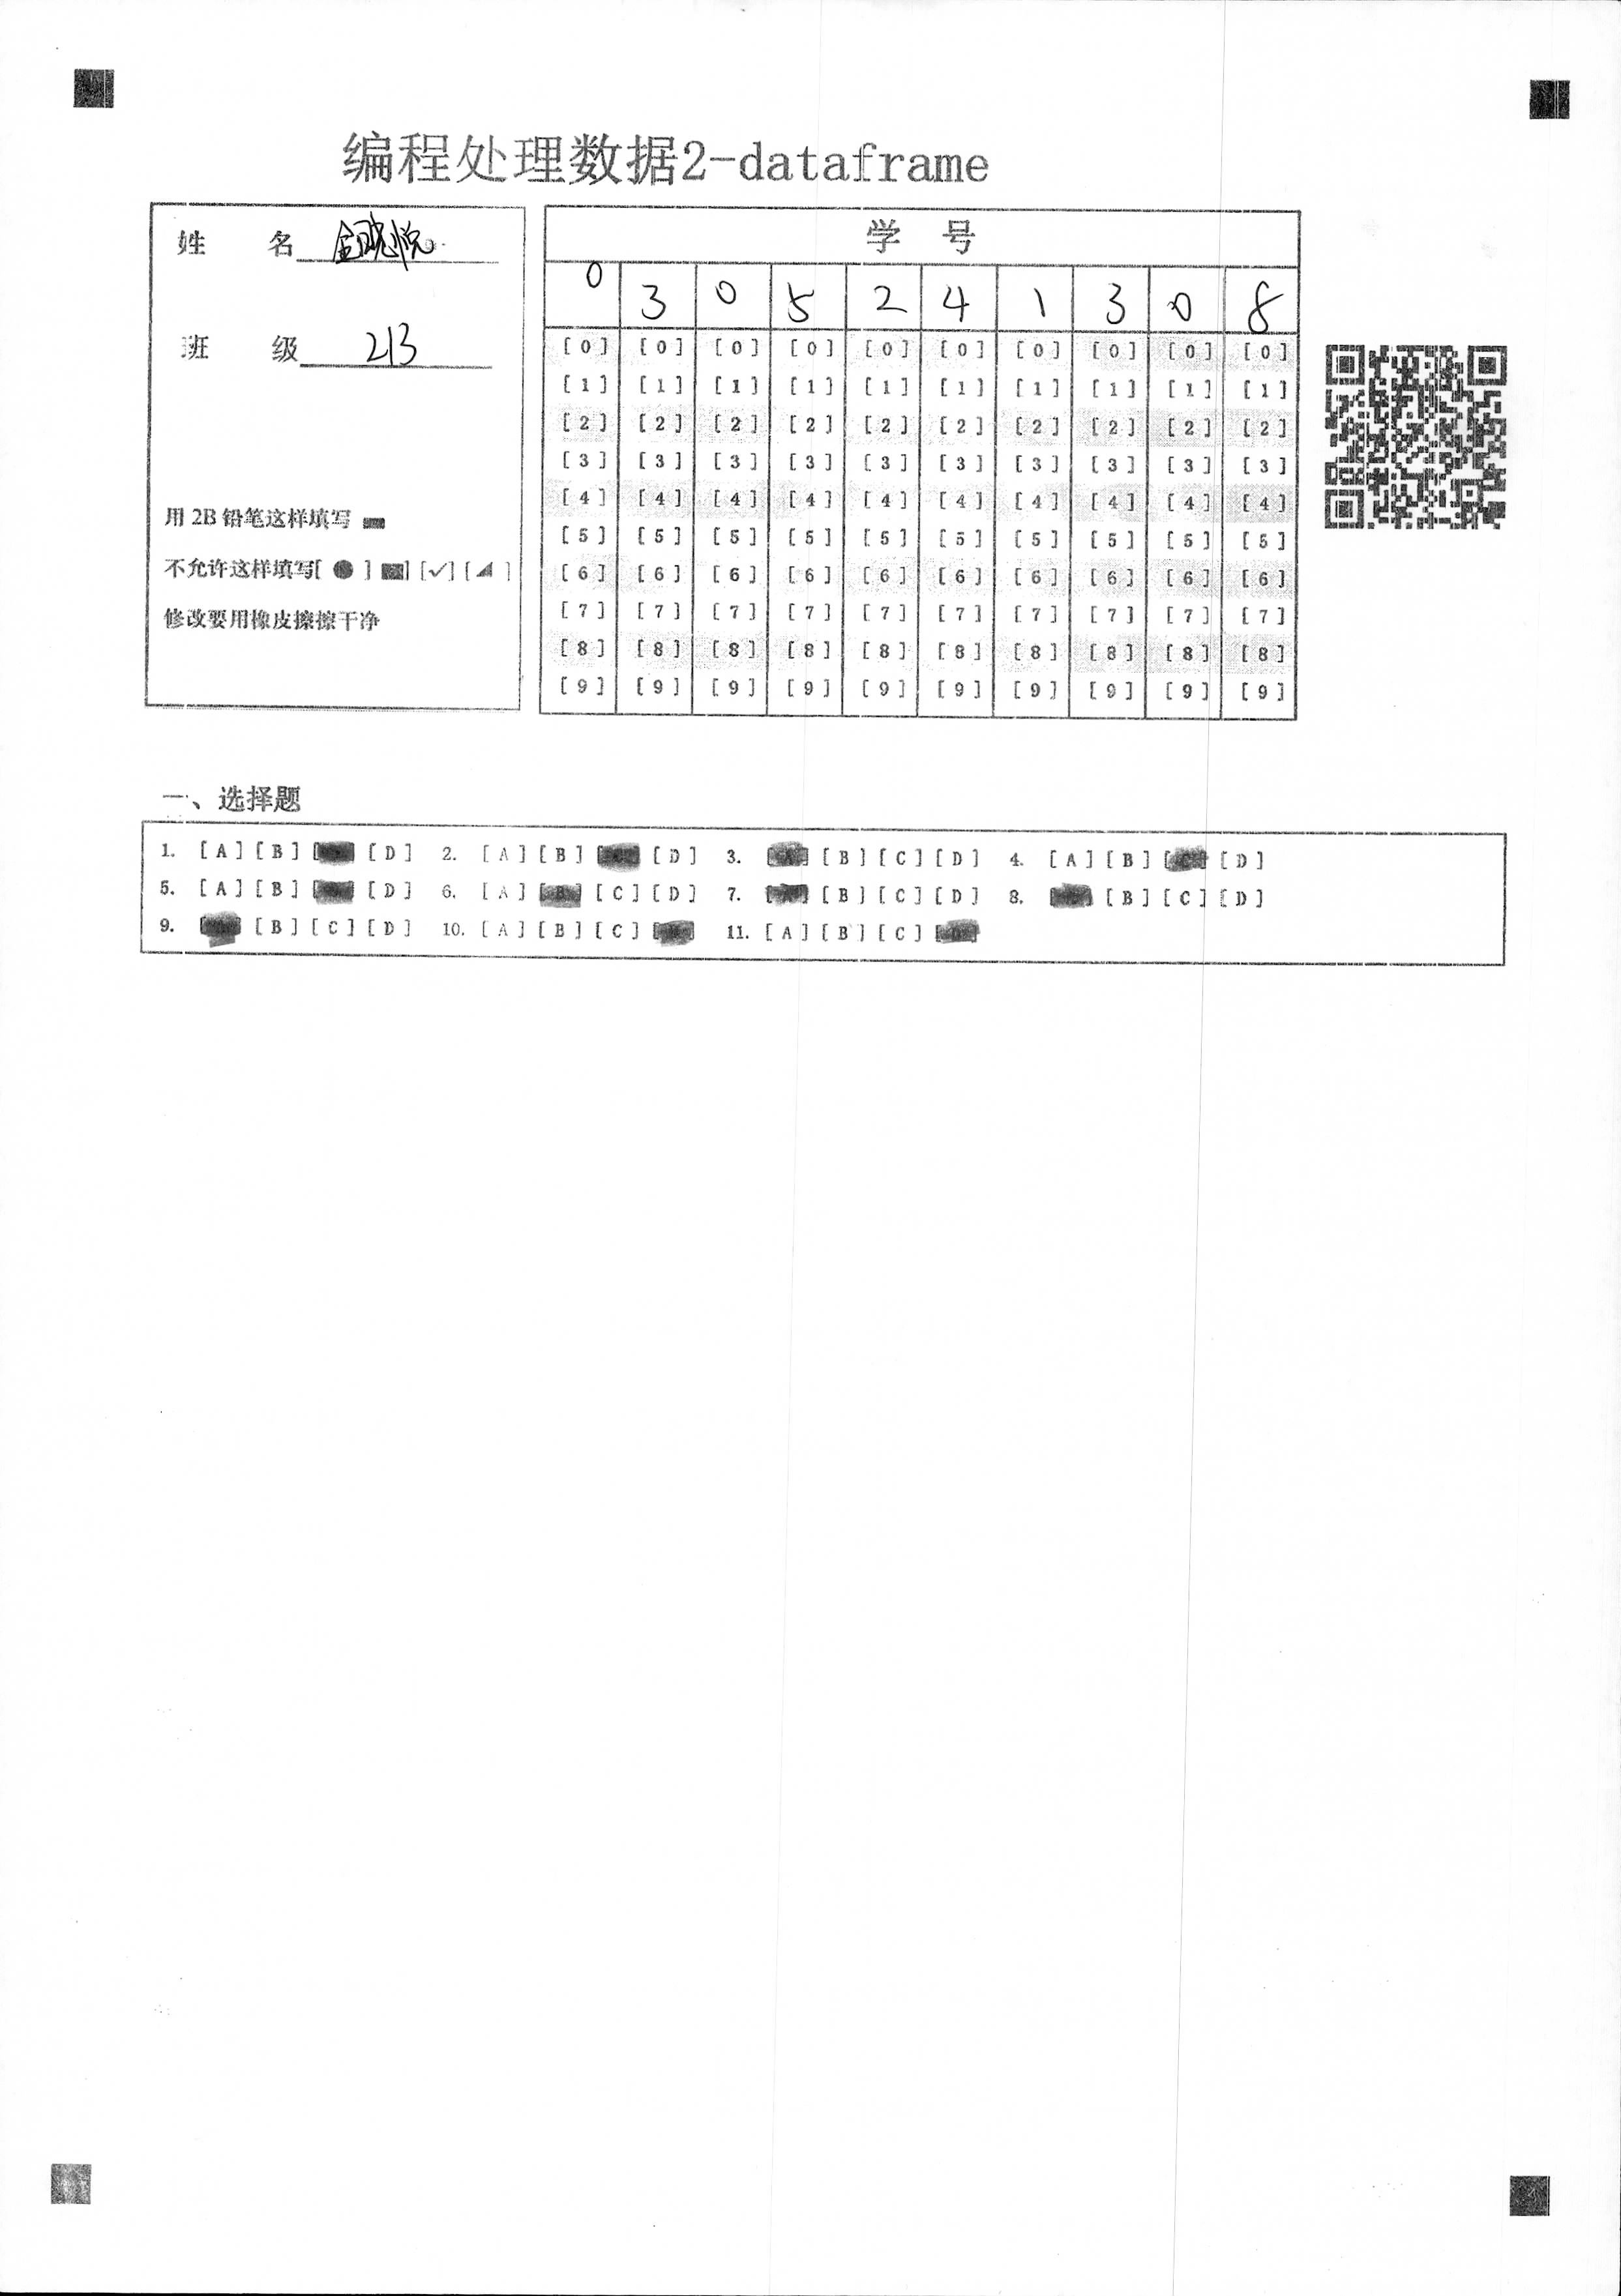 编程处理数据2-dataframe
姓 名 金晓悦
班 级 213
用 2B 铅笔这样填写
不允许这样填写[ ● ] [✓] [ ]
修改要用橡皮擦擦干净
学 号
0 3 0 5 2 4 1 3 0 8
[0] [0] [0] [0] [0] [0] [0] [0] [0] [0]
[1] [1] [1] [1] [1] [1] [1] [1] [1] [1]
[2] [2] [2] [2] [2] [2] [2] [2] [2] [2]
[3] [3] [3] [3] [3] [3] [3] [3] [3] [3]
[4] [4] [4] [4] [4] [4] [4] [4] [4] [4]
[5] [5] [5] [5] [5] [5] [5] [5] [5] [5]
[6] [6] [6] [6] [6] [6] [6] [6] [6] [6]
[7] [7] [7] [7] [7] [7] [7] [7] [7] [7]
[8] [8] [8] [8] [8] [8] [8] [8] [8] [8]
[9] [9] [9] [9] [9] [9] [9] [9] [9] [9]
一、选择题
1. [A] [B] [D] 2. [A] [B] [D] 3. [A] [B] [C] [D] 4. [A] [B] [C] [D]
5. [A] [B] [D] 6. [A] [B] [C] [D] 7. [B] [C] [D] 8. [B] [C] [D]
9. [B] [C] [D] 10. [A] [B] [C] 11. [A] [B] [C]